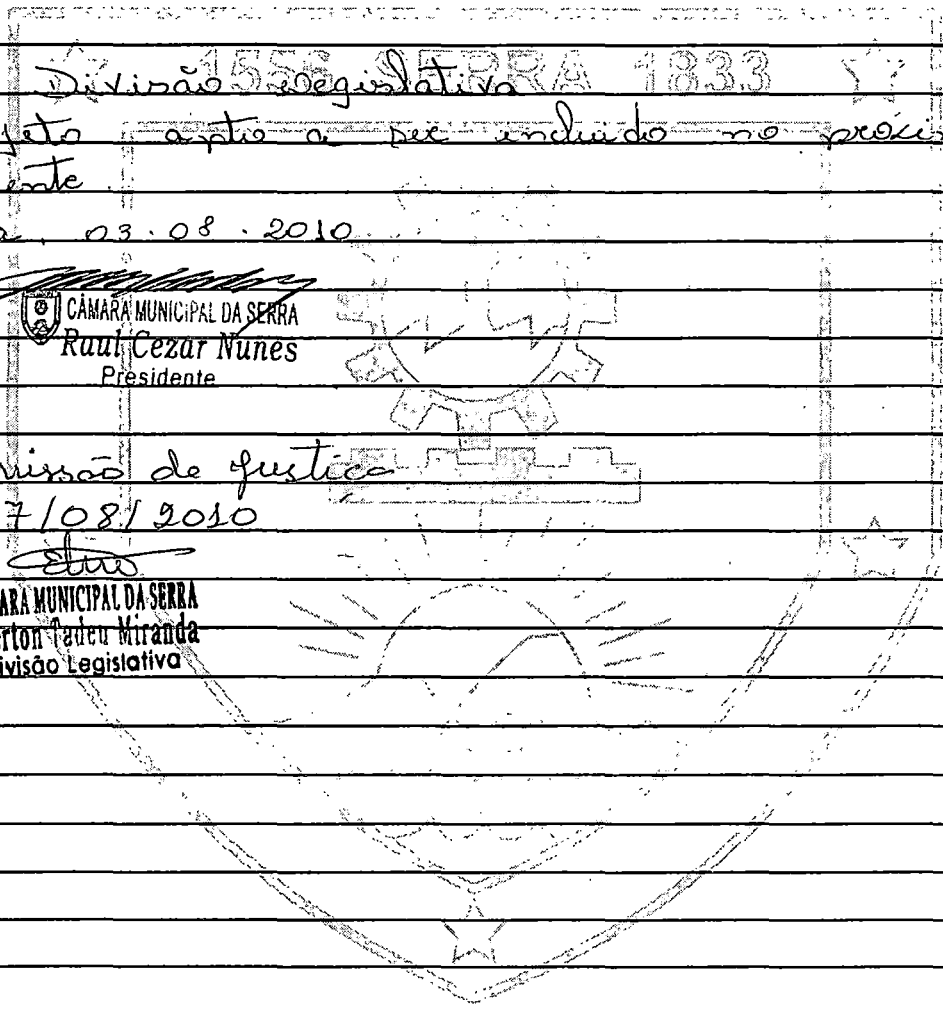 1556 SERRA 1833
Divisão Legislativa
jeto apto a ser incluido no próxi
ente
a, 03.08.2010
CÂMARA MUNICIPAL DA SERRA
Raul Cezar Nunes
Presidente
missão de Justiça
7/08/2010
ARA MUNICIPAL DA SERRA
erton Tadeu Miranda
ivisão Legislativa